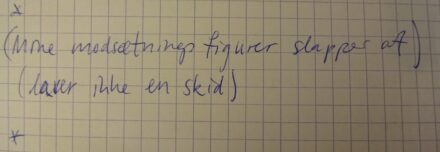 x
(Mine modsætnings figurer slapper af)
(laver ikke en skid)
x